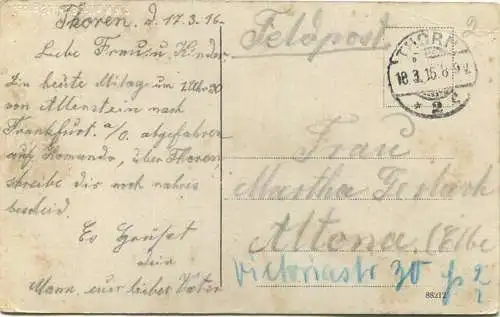 Thoren. d. 17.3.16.
Liebe Frau u. Kinder
Bin heute Mitag um 1 Uhr 30
von Allenstein nach
Frankfurt. a/O. abgefahren
auf Komando, über Thoren,
schreibe dir noch nähres
bescheid.
Es Grüßet
dein
Mann, euer lieber Vater
Feldpost
THORN
18.3.16.8-9V.
* 2 c
Frau
Martha
Altona. (Elbe
Victoriastr 30
88212